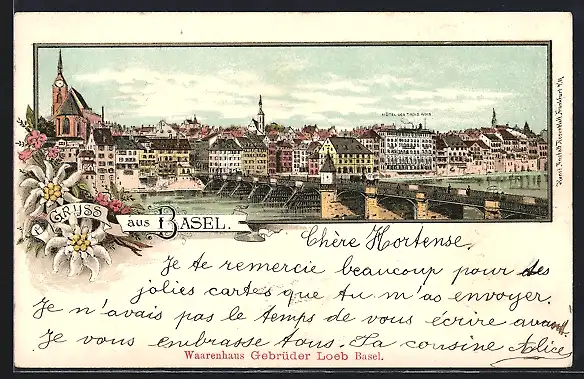 HÔTEL DES TROIS ROIS
GRUSS
aus BASEL.
Chère Hortense.
Je te remercie beaucoup pour des
jolies cartes que tu m'as envoyer.
Je n'avais pas le temps de vous écrire avant.
Je vous embrasse tous. Ta cousine Alice
Waarenhaus Gebrüder Loeb Basel.